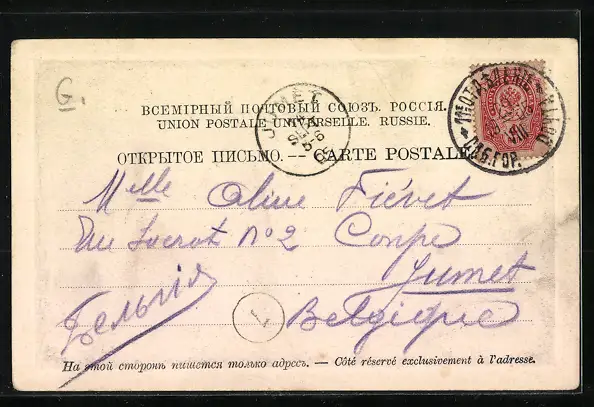 G.
ВСЕМІРНЫЙ ПОЧТОВЫЙ СОЮЗЪ. РОССІЯ.
UNION POSTALE UNIVERSELLE. RUSSIE.
ОТКРЫТОЕ ПИСЬМО. — CARTE POSTALE
JUMET
Melle Aline Fiévet
N° 2
Jumet
Бельгія
Belgique
На этой сторонѣ пишется только адресъ. — Côté réservé exclusivement à l'adresse.